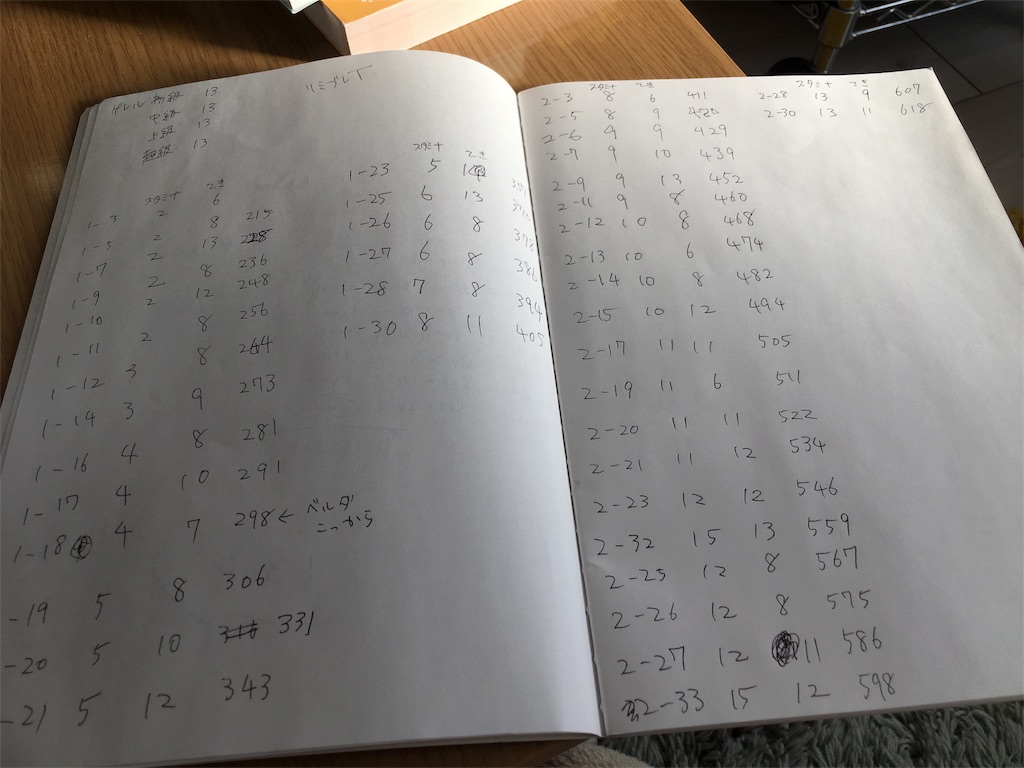 ギレル 初級 13
中級 13
上級 13
超級 13
スタミナ てき
1-3 2 6
1-5 2 8 215
1-7 2 13 228
1-9 2 8 236
1-10 2 12 248
1-11 2 8 256
1-12 3 8 264
1-14 3 9 273
1-16 4 8 281
1-17 4 10 291
1-18 4 7 298 ← ベルダ
こっから
-19 5 8 306
-20 5 10 331
-21 5 12 343
スタミナ てき
1-23 5
1-25 6 13
1-26 6 8 378
1-27 6 8 386
1-28 7 8 394
1-30 8 11 405
スタミナ てき
2-3 8 6 411
2-5 8 9 420
2-6 9 9 429
2-7 9 10 439
2-9 9 13 452
2-11 9 8 460
2-12 10 8 468
2-13 10 6 474
2-14 10 8 482
2-15 10 12 494
2-17 11 11 505
2-19 11 6 511
2-20 11 11 522
2-21 11 12 534
2-23 12 12 546
2-32 15 13 559
2-25 12 8 567
2-26 12 8 575
2-27 12 11 586
2-33 15 12 598
スタミナ てき
2-28 13 9 607
2-30 13 11 618